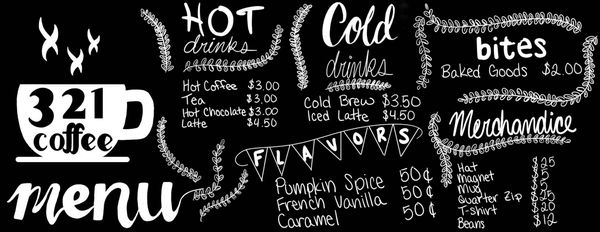 321
coffee
menu
HOT
drinks
Hot Coffee $3.00
Tea $3.00
Hot Chocolate $3.00
Latte $4.50
Cold
drinks
Cold Brew $3.50
Iced Latte $4.50
FLAVORS
Pumpkin Spice 50¢
French Vanilla 50¢
Caramel 50¢
bites
Baked Goods $2.00
Merchandice
Hat $25
Magnet
Mug
Quarter Zip
T-shirt $20
Beans $12